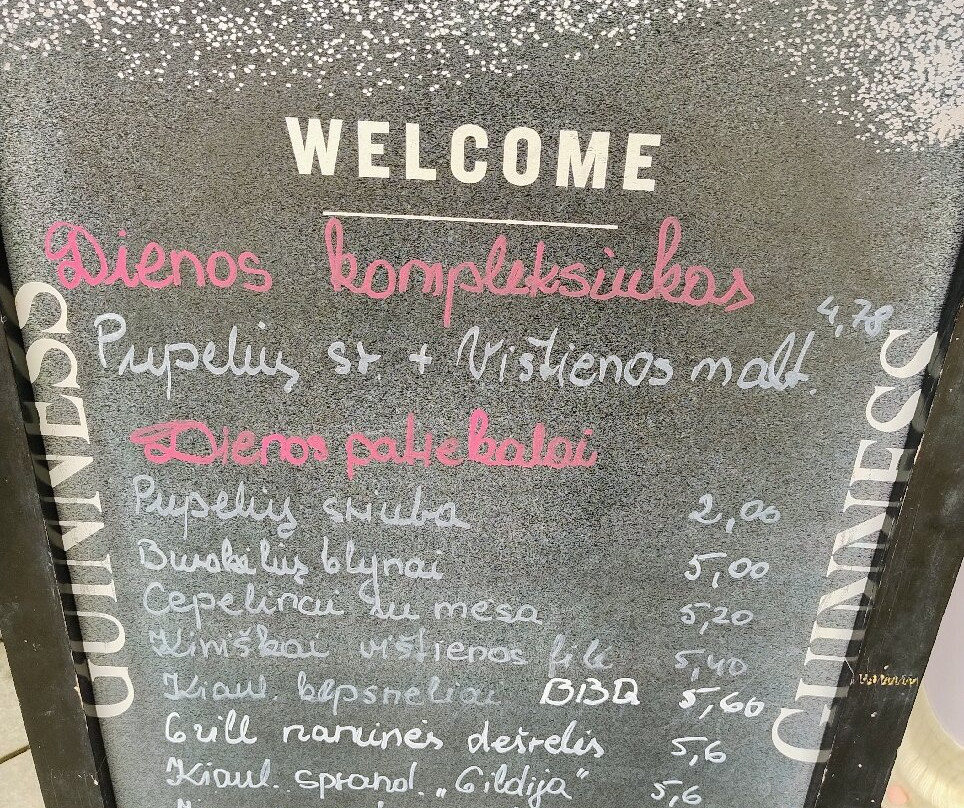 WELCOME
Dienos kompleksiukas
4,78
Pupelių sr + Vištienos malt.
Dienos patiekalai
Pupelių sriuba 2,00
Burokėlių blynai 5,00
Cepelinai su mėsa 5,20
Kiniškai vištienos filė 5,40
Kiaul. kepsneliai BBQ 5,60
Grill naminės dešrelės 5,6
Kiaul. sprand. „Gildija" 5,6
GUINNESS
GUINNESS